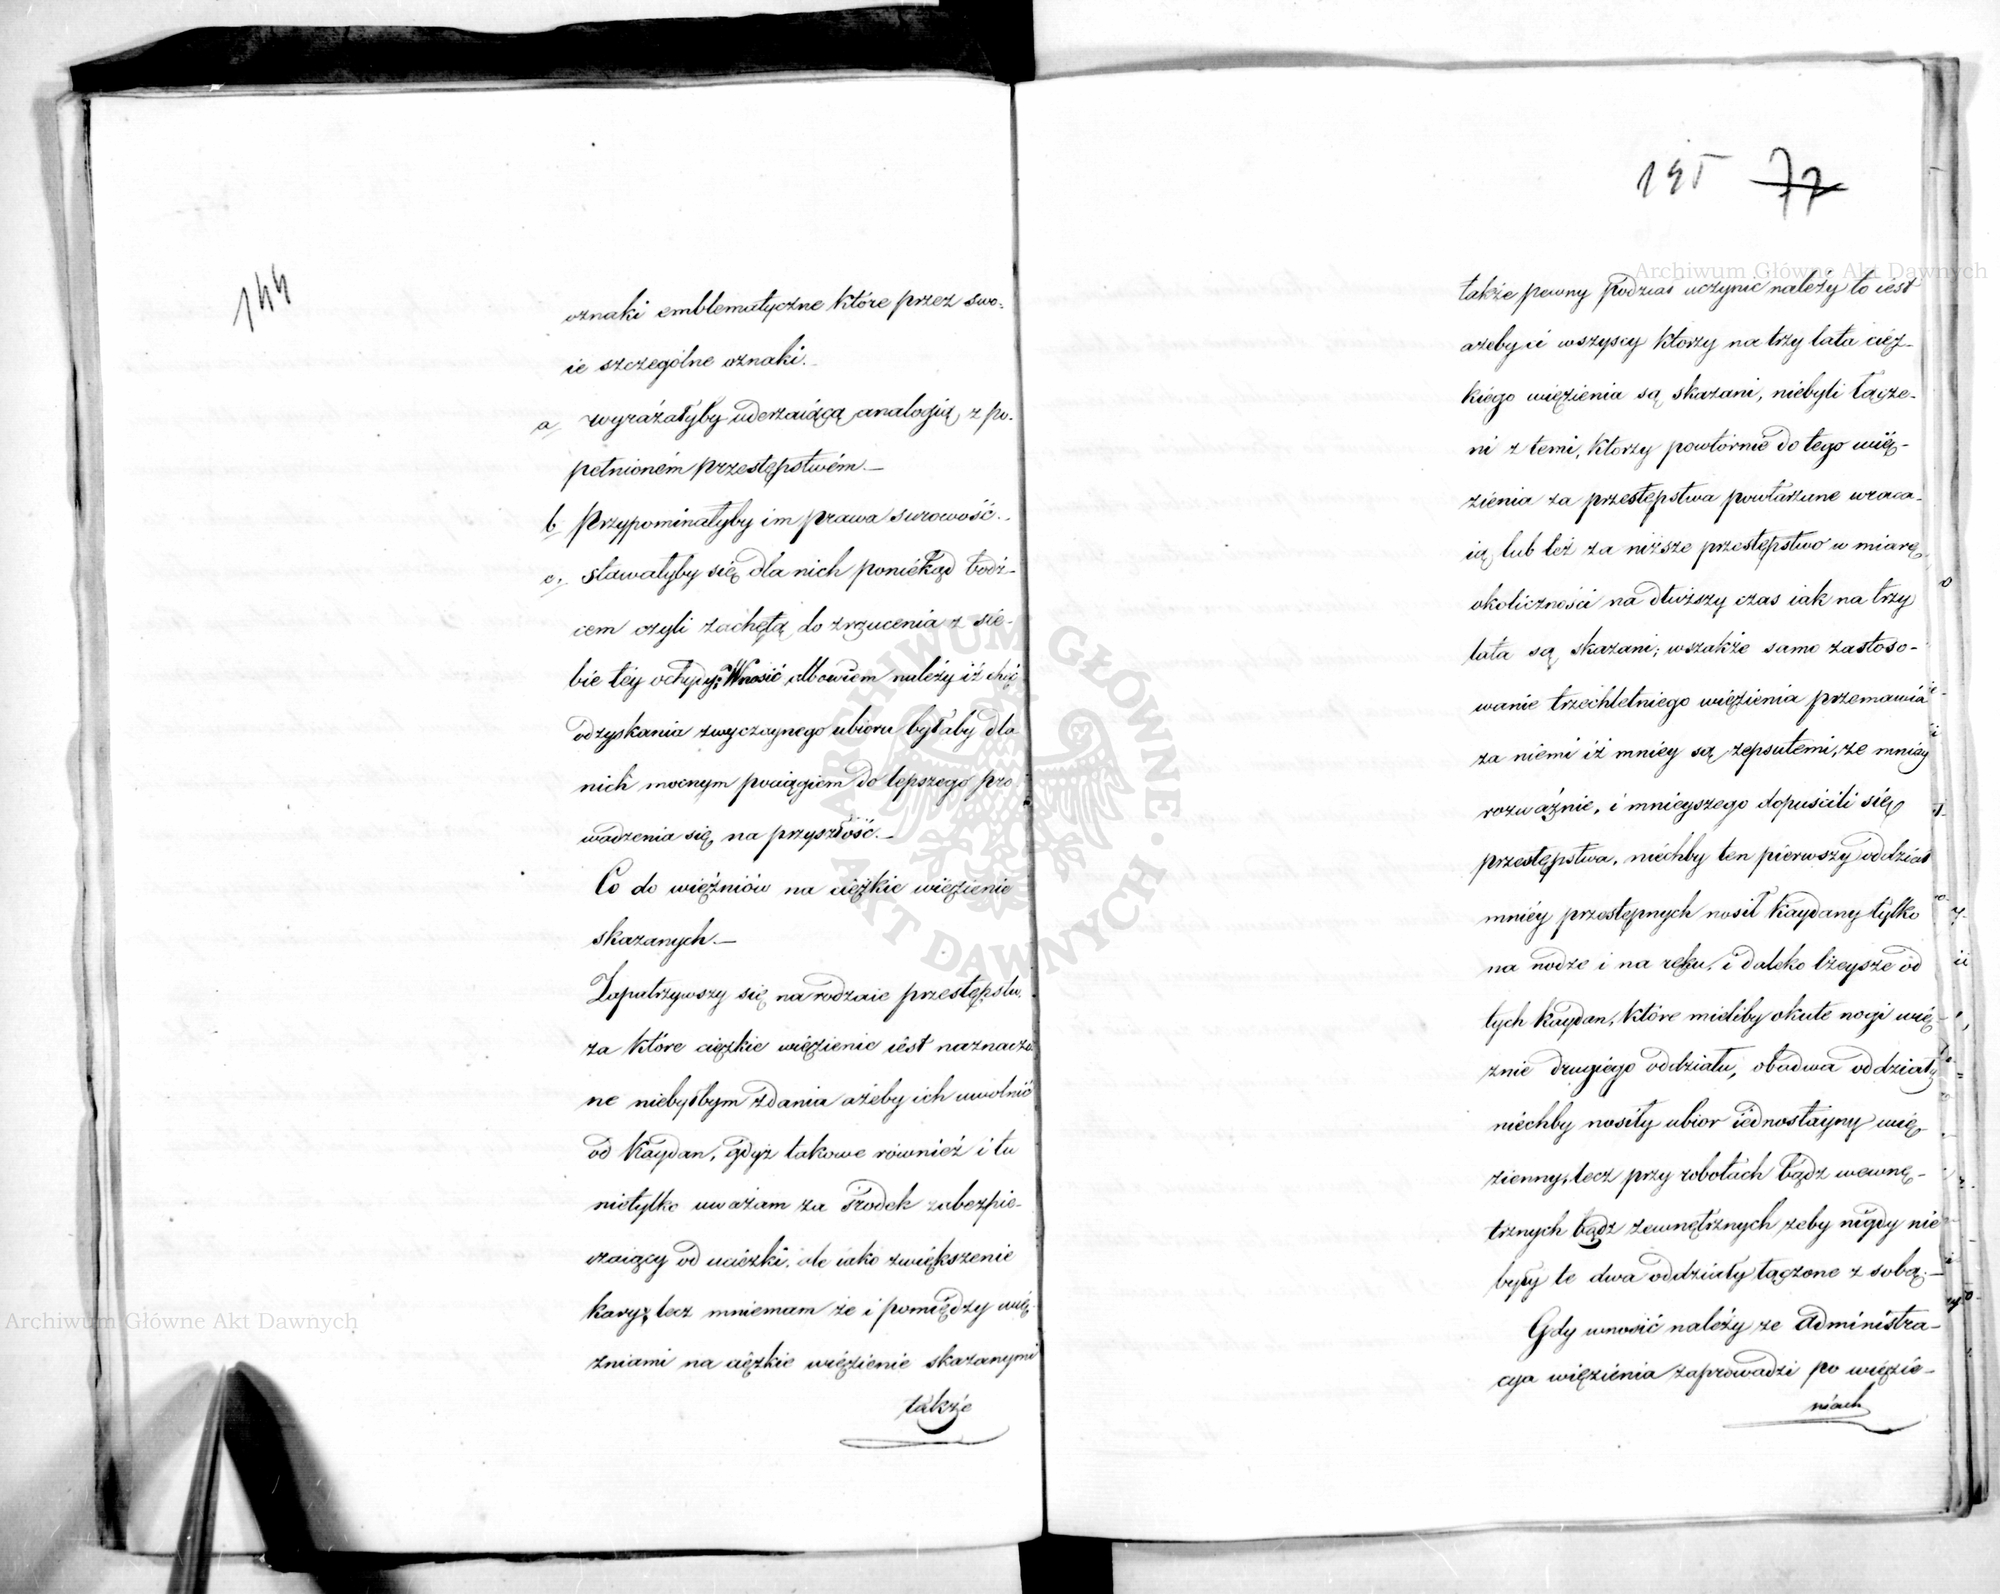 144
oznaki emblematyczne które przez swo-
ie szczególne oznaki.
a, wyrażałyby uderzaiącą analogią z po-
pełnioném przestępstwém.—
b. Przypominałyby im prawa surowość.
c, stawałyby się dla nich poniékąd bodź-
cem czyli zachętą do zrzucenia z sie-
bie téy ochydy; Wnosić albowiem należy iż chęć
odzyskania zwyczaynego ubioru byłaby dla
nich mocnym pociągiem do lepszego pro
wadzenia się na przyszłość.—
Co do więźniów na ciężkie więzienie
skazanych.—
Zapatrzywszy się na rodzaie przestępstw,
za które ciężkie więzienie iést naznaczo
ne niebyłbym zdania ażeby ich uwolnić
od Kaydan, gdyż takowe również i tu
nietylko uważam za środek zabezpie-
czaiący od ucieżki, ale iako zwiększenie
kary; lecz mniemam że i pomiędzy wię-
źniami na ciężkie więzienie skazanymi
także
145 77
także pewny podział uczynić należy to iést
ażeby ci wszyscy którzy na trzy lata cięż-
kiégo więzienia są skazani, niébyli łącze-
ni z temi, którzy powtórnie do tego wię-
zienia za przestępstwa powtarzane wraca-
ią, lub też za niższe przestępstwo w miarę
okoliczności na dłuższy czas iak na trzy
lata są skazani; wszakże samo zastoso-
wanie trzechletniego więzienia przemawia
za niemi iż mniey są zepsutemi, że mniey
rozważnie, i mnieyszego dopuścili się
przestępstwa, niéchby ten piérwszy oddział
mniéy przestępnych nosił Kaydany tylko
na nodze i na ręku, i daleko lżeysze od
tych Kaydan, które mieliby okute nogi wię-
źnie drugiégo oddziału, obadwa oddziały
niéchby nosiły ubior iédnostayny wię
zienny, lecz przy robotach bądź wewnę-
trznych bądz zewnętrznych zeby nigdy nie
były te dwa oddziały łączone z sobą.—
Gdy wnosić należy że Administra-
cya więzienia zaprowadzi po więzie-
niach
Archiwum Główne Akt Dawnych
Archiwum Główne Akt Dawnych
ARCHIWUM GŁÓWNE AKT DAWNYCH